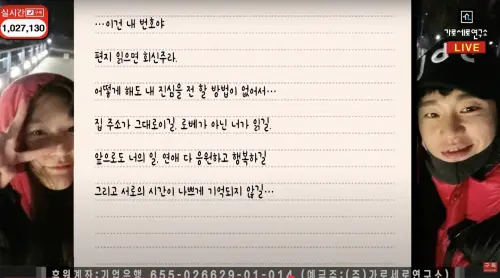 실시간 구독
1,027,130
가로세로연구소
LIVE
…이건 내 번호야
편지 읽으면 회신주라.
어떻게 해도 내 진심을 전 할 방법이 없어서…
집 주소가 그대로이길. 로베가 아닌 너가 읽길.
앞으로도 너의 일, 연애 다 응원하고 행복하길
그리고 서로의 시간이 나쁘게 기억되지 않길…
구독
후원계좌:기업은행 655-026629-01-014 (예금주:(주)가로세로연구소)